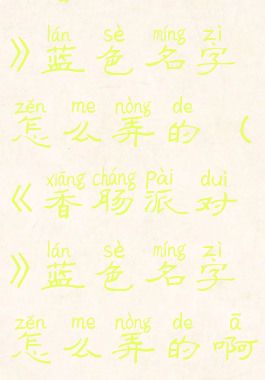 lán sè míng zì
》蓝色名字
zěn me nòng de
怎么弄的（
xiāng cháng pài duì
《香肠派对
lán sè míng zì
》蓝色名字
zěn me nòng de ā
怎么弄的啊